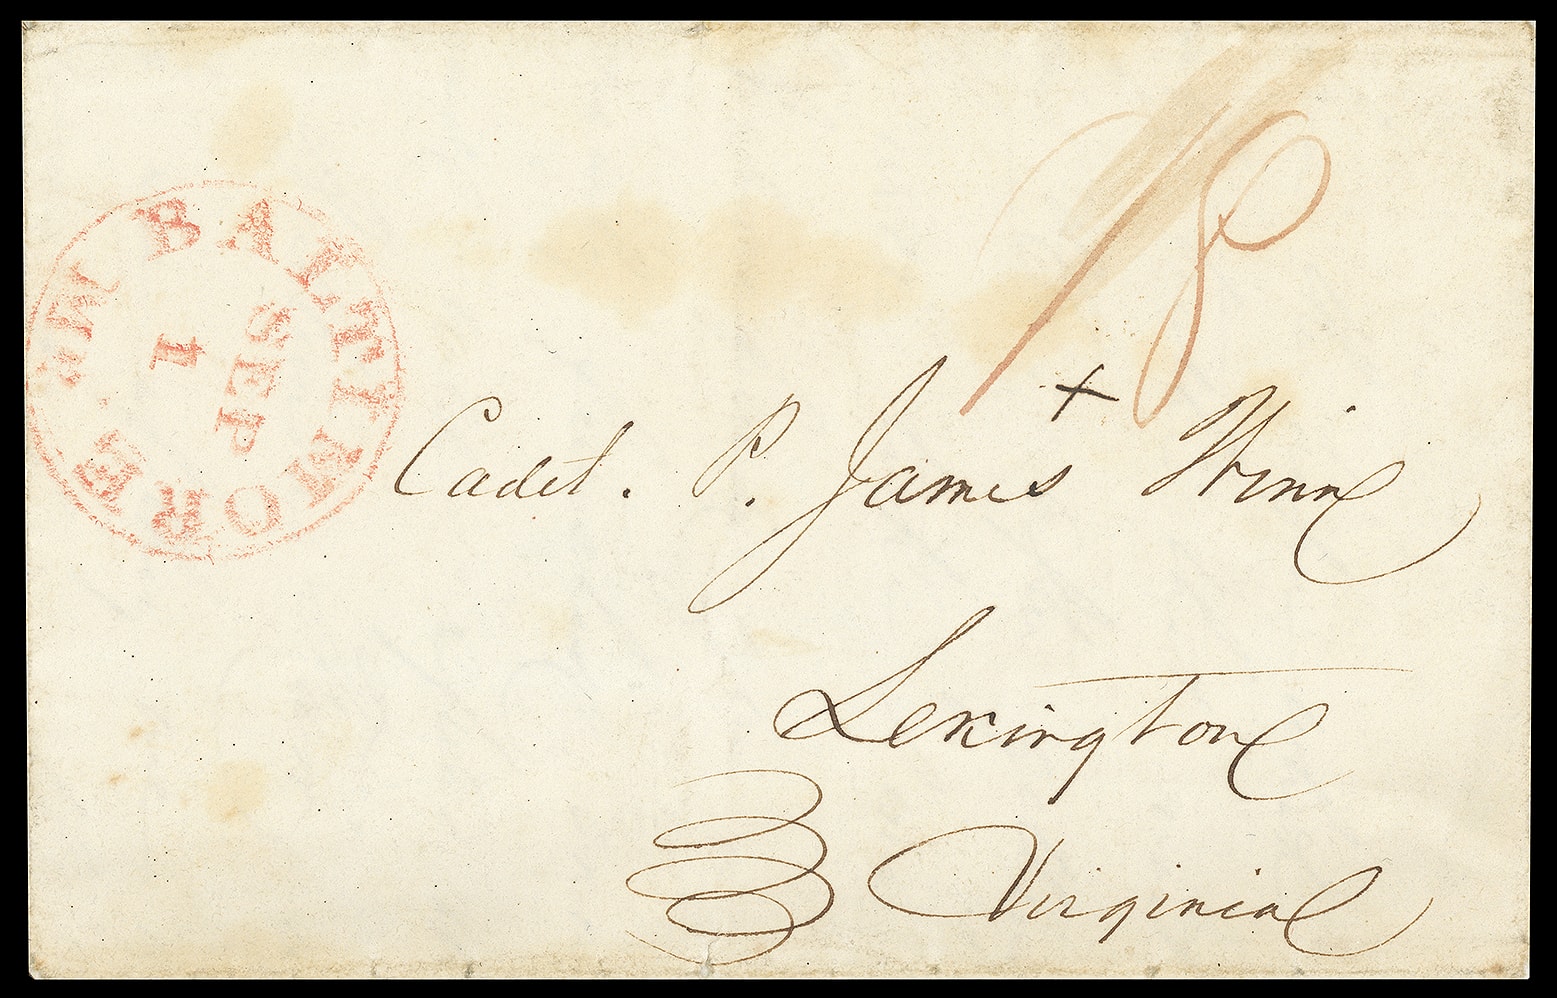 BALTIMORE Md.
SEP
1
18
Cadet. P. James Winn
Lexington
Virginia